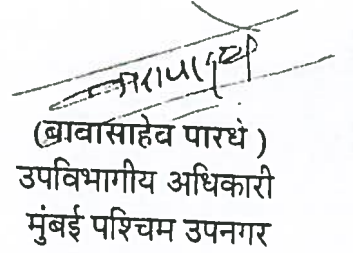 (बाबासाहेब पारधे )
उपविभागीय अधिकारी
मुंबई पश्चिम उपनगर